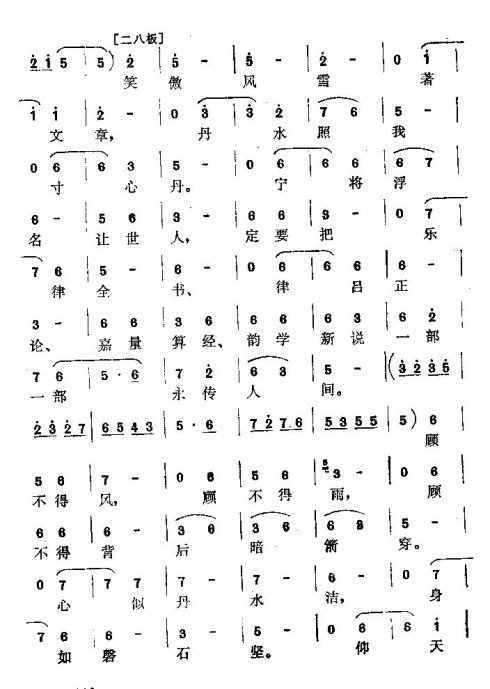 [二八板]
2 1 5 | 5) 2 | 5 - | 5 - | 2 - | 0 1
笑 傲 风 雪 著
1 1 | 2 - | 0 3 | 3 2 | 7 6 | 5 -
文 章, 丹 水 照 我
0 6 | 6 3 | 5 - | 0 6 | 6 6 | 6 7
寸 心 丹。 宁 将 浮
6 - | 5 6 | 3 - | 6 6 | 5 - | 0 7
名 让 世 人, 定 要 把 乐
7 6 | 5 - | 6 - | 0 6 | 6 6 | 5 -
律 全 书、 律 吕 正
3 - | 6 6 | 6 3 | 6 6 | 6 3 | 6 2
论、 嘉 量 算 经、 韵 学 新 说 一 部
7 6 | 5 · 6 | 7 2 | 6 3 | 5 - | (3 2 3 5
一 部 永 传 人 间。
2 3 2 7 | 6 5 4 3 | 5 · 6 | 7 2 7 6 | 5 3 5 5 | 5) 6
顾
5 6 | 7 - | 0 6 | 5 6 | 3 - | 0 6
不 得 风, 顾 不 得 雨, 顾
6 6 | 6 - | 3 6 | 3 6 | 6 3 | 5 -
不 得 背 后 暗 箭 穿。
0 7 | 7 7 | 7 - | 7 - | 6 - | 0 7
心 似 丹 水 洁, 身
7 6 | 6 - | 5 - | 6 - | 0 6 | 6 1
如 磐 石 坚。 仰 天